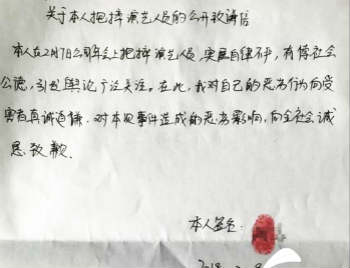 关于本人把摔演艺人员的公开致歉信
本人在2月7日公司年会上把摔演艺人员,实属自律不严,有悖社会
公德,引起舆论广泛关注。在此,我对自己的恶劣行为向受
害者真诚道歉,对本里事件造成的恶劣影响,向全社会诚
恳致歉。
本人签名: